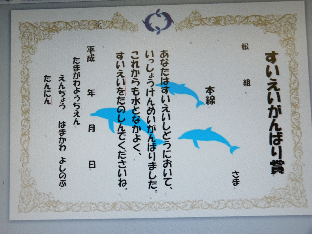 すいえいがんばり賞
松　組
さま
本線
あなたはすいえいしどうにおいて、
いっしょうけんめいがんばりました。
これからも水となかよく、
すいえいをたのしんでくださいね。
平成　年　月　日
たまがわようちえん
えんちょう　はまかわ　よしのぶ
たんにん